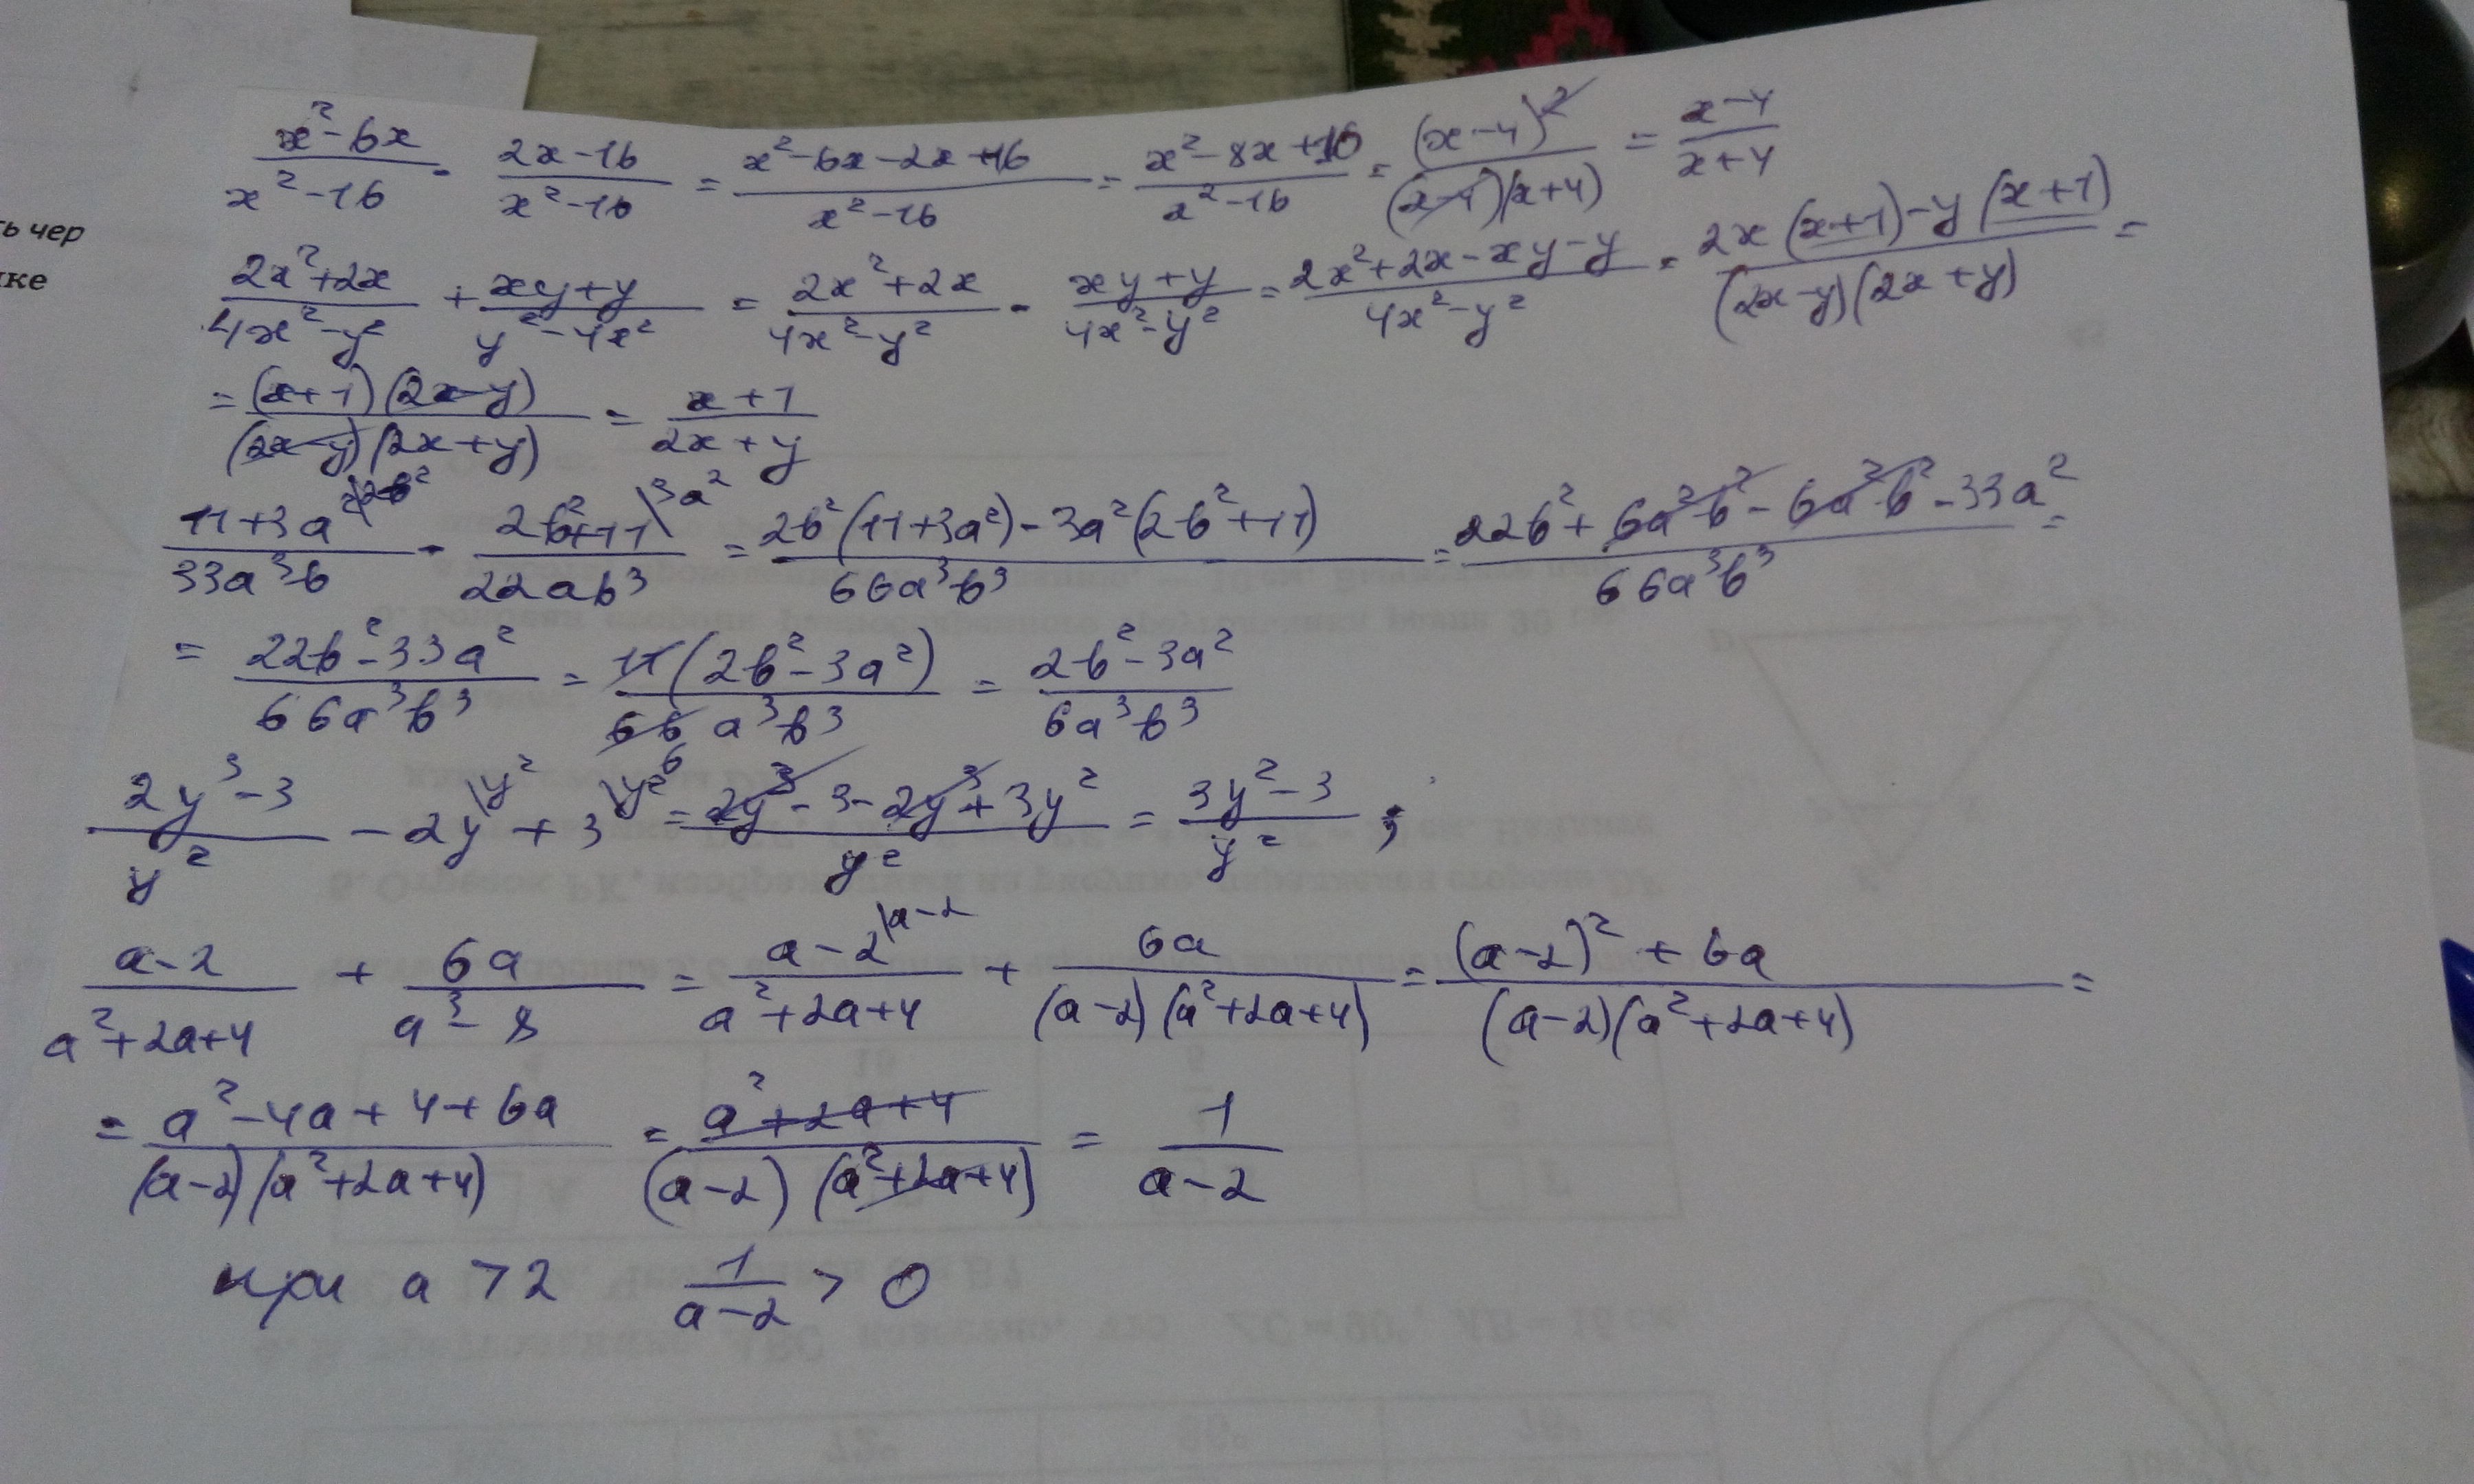 ть чер
ке
x²-6x/x²-16 - 2x-16/x²-16 = x²-6x-2x+16/x²-16 = x²-8x+16/x²-16 = (x-4)²/(x-4)(x+4) = x-4/x+4
2x²+2x/4x²-y² + xy+y/y²-4x² = 2x²+2x/4x²-y² - xy+y/4x²-y² = 2x²+2x-xy-y/4x²-y² = 2x(x+1)-y(x+1)/(2x-y)(2x+y) =
= (x+1)(2x-y)/(2x-y)(2x+y) = x+1/2x+y
11+3a²\2b²/33a³b - 2b²+11\3a²/22ab³ = 2b²(11+3a²)-3a²(2b²+11)/66a³b³ = 22b²+6a²b²-6a²b²-33a²/66a³b³ =
= 22b²-33a²/66a³b³ = 11(2b²-3a²)/66a³b³ 6 = 2b²-3a²/6a³b³
2y³-3/y² - 2y\y² + 3\y² = 2y³-3-2y³+3y²/y² = 3y²-3/y² ;
a-2/a²+2a+4 + 6a/a³-8 = a-2\a-2/a²+2a+4 + 6a/(a-2)(a²+2a+4) = (a-2)²+6a/(a-2)(a²+2a+4) =
= a²-4a+4+6a/(a-2)(a²+2a+4) = a²+2a+4/(a-2)(a²+2a+4) = 1/a-2
при a>2 1/a-2 > 0